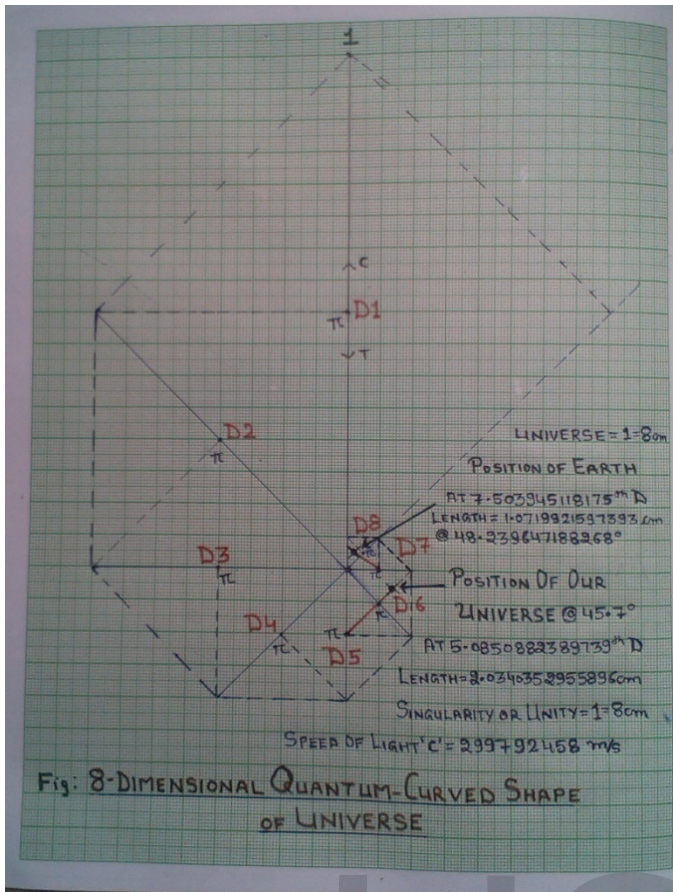 1
C
D1
π
T
D2
π
UNIVERSE = 1=8cm
POSITION OF EARTH
AT 7.503945118175th D
LENGTH = 1.0719921597393 cm
@ 48.239647188268°
D8
π
D7
π
D3
π
POSITION OF OUR
D6
π
UNIVERSE @ 45.7°
D4
π
π
D5
AT 5.0850882389739th D
LENGTH=2.0340352955896cm
SINGULARITY OR UNITY=1=8cm
SPEED OF LIGHT 'C' = 299792458 m/s
Fig: 8-DIMENSIONAL QUANTUM-CURVED SHAPE
OF UNIVERSE